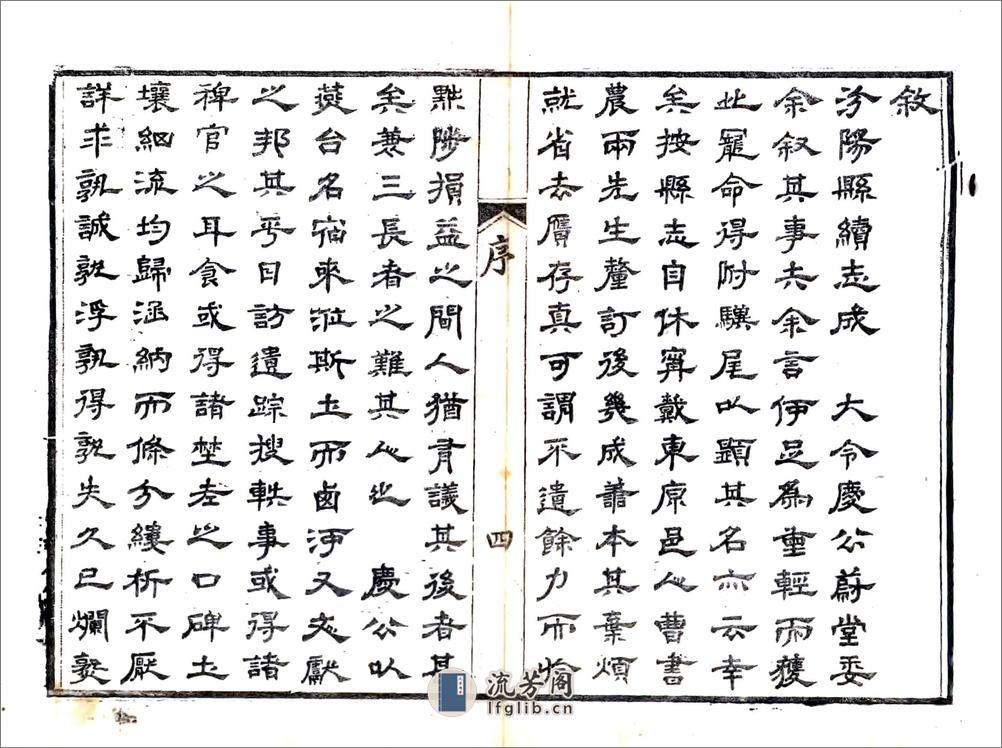 敘
汾陽縣續志成　大令慶公蔚堂委
余敘其事夫余言伊足為重輕而獲
此寵命得附驥尾以顯其名亦云幸
矣按縣志自休甯戴東原邑人曹書
農兩先生釐訂後幾成善本其棄煩
就省去贋存真可謂不遺餘力而於
序
四
黜陟損益之間人猶有議其後者甚
矣兼三長者之難其人也　慶公以
燕台名宿來涖斯土而西河又文獻
之邦其平日訪遺踪搜軼事或得諸
稗官之耳食或得諸埜老之口碑土
壤細流均歸涵納而條分縷析不厭
詳求孰誠孰浮孰得孰失久已爛熟
流芳阁
lfglib.cn